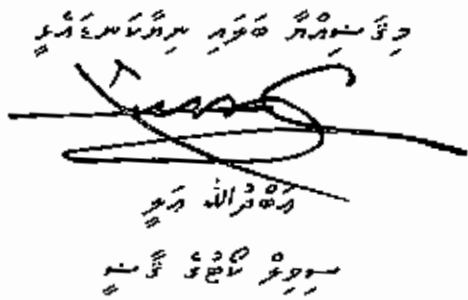 މިޤަޟިއްޔާ ބަލައި ނިޔާކަނޑައެޅީ
ޢަބްދުﷲ ޢަލީ
ސިވިލް ކޯޓުގެ ޤާޟީ